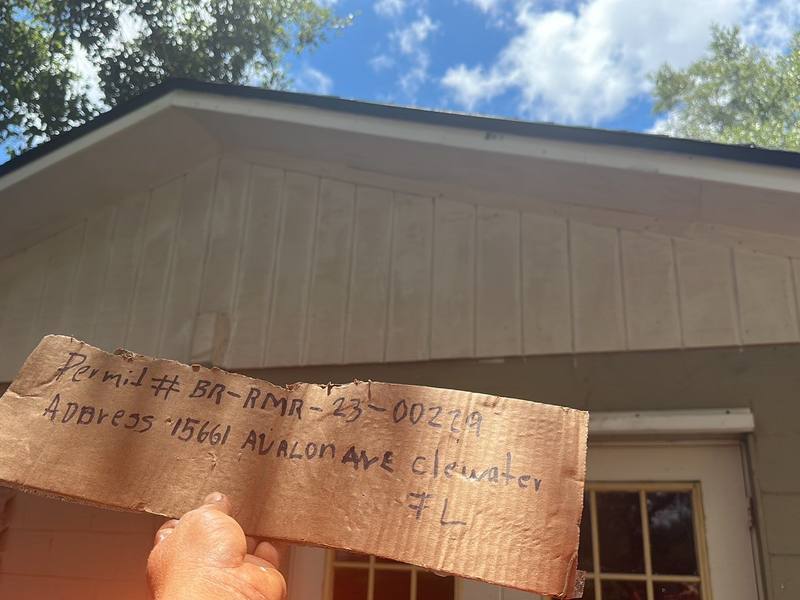 Permit # BR-RMR-23-00229
ADDress 15661 AVALON AVE Clewater
FL